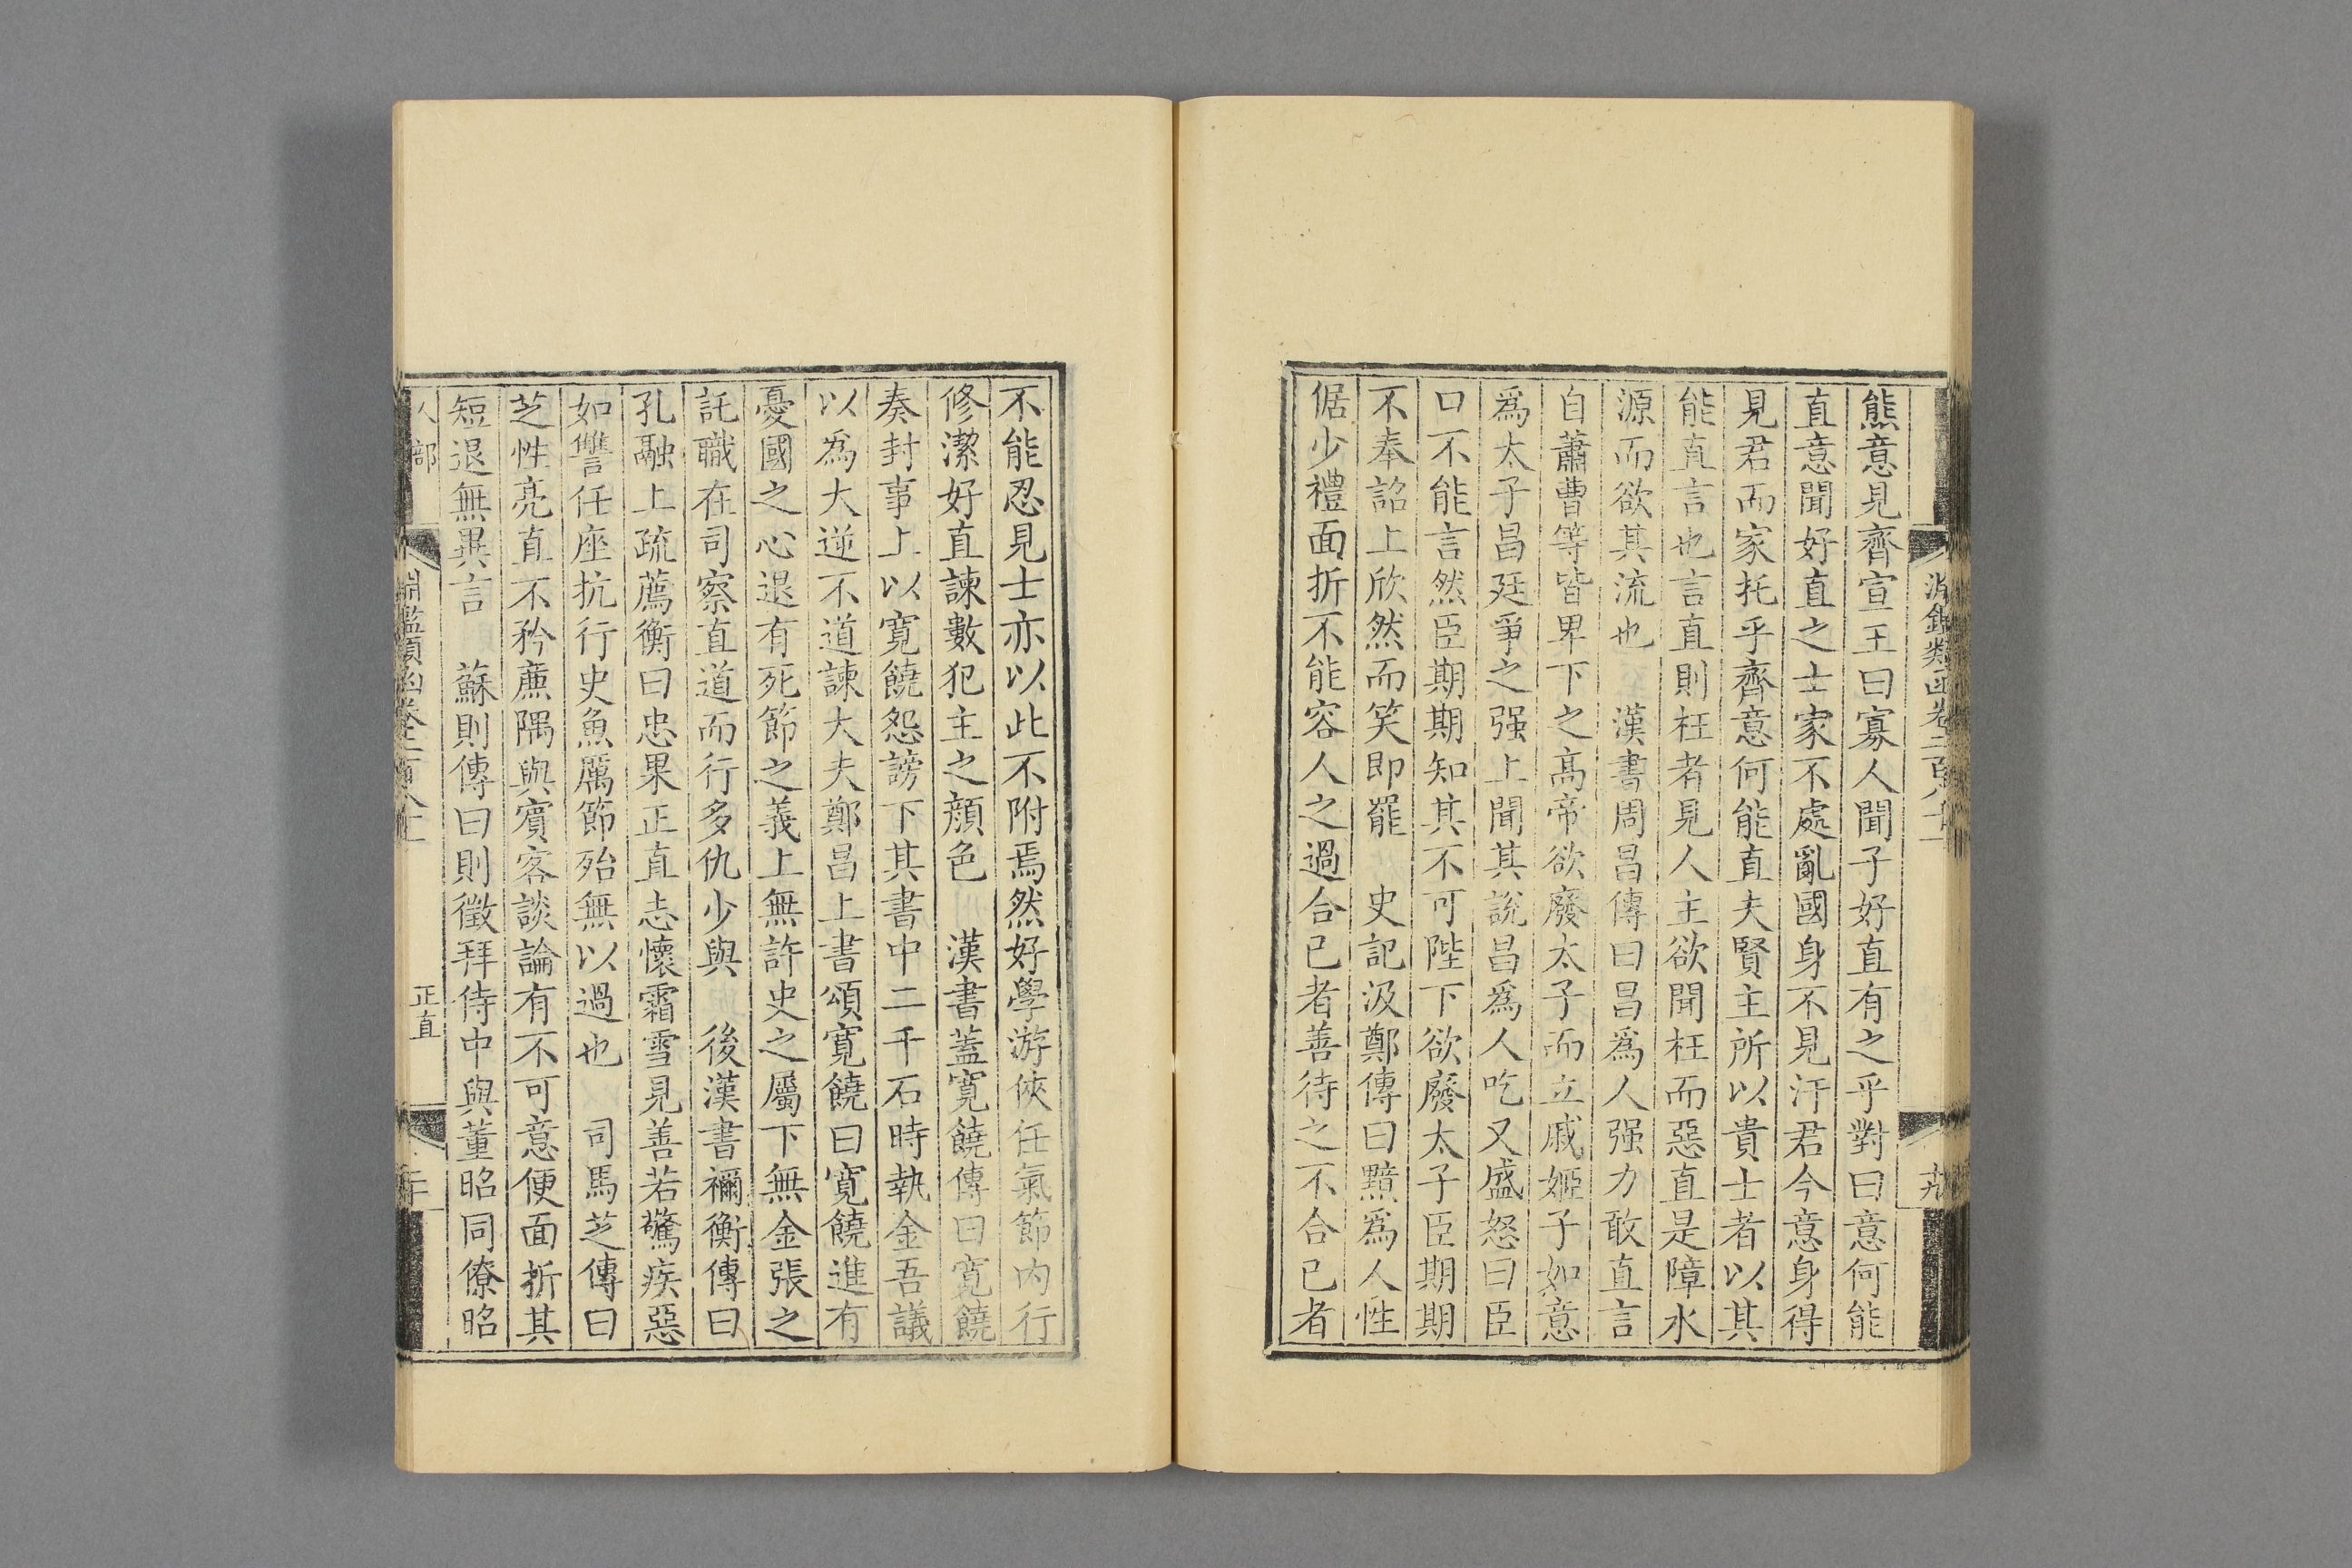 熊意見齊宣王曰寡人聞子好直有之乎對曰意何能
直意聞好直之士家不處亂國身不見汙君今意身得
見君而家托乎齊意何能直夫賢主所以貴士者以其
能直言也言直則枉者見人主欲聞枉而惡直是障水
源而欲其流也 漢書周昌傳曰昌爲人强力敢直言
自蕭曹等皆畀下之高帝欲廢太子而立戚姬子如意
爲太子昌廷爭之强上聞其說昌爲人吃又盛怒曰臣
口不能言然臣期期知其不可陛下欲廢太子臣期期
不奉詔上欣然而笑即罷 史記汲鄭傳曰黯爲人性
倨少禮面折不能容人之過合已者善待之不合已者
不能忍見士亦以此不附焉然好學游俠任氣節內行
修潔好直諫數犯主之顏色 漢書蓋寬饒傳曰寬饒
奏封事上以寬饒怨謗下其書中二千石時執金吾議
以爲大逆不道諫大夫鄭昌上書頌寬饒曰寬饒進有
憂國之心退有死節之義上無許史之屬下無金張之
託職在司察直道而行多仇少與 後漢書禰衡傳曰
孔融上疏薦衡曰忠果正直志懷霜雪見善若驚疾惡
如讐任座抗行史魚厲節殆無以過也 司馬芝傳曰
芝性亮直不矜廉隅與賓客談論有不可意便面折其
短退無異言 蘇則傳曰則徵拜侍中與董昭同僚昭
人部
淵鑑類函卷二百八十一
正直